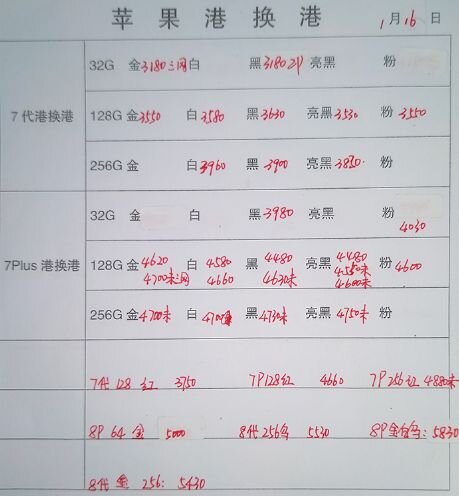 苹果港换港 1月16日
32G 金3180三网 白 黑3180 亮黑 粉
7代港换港 128G 金3550 白3580 黑3630 亮黑3530 粉3550
256G 金 白3960 黑3900 亮黑3850 粉
32G 金 白 黑3980 亮黑 粉4030
7Plus港换港 128G 金4620 白4580 黑4480 亮黑4480 粉4600
4700未三网 4660 4630未 4550未
4600未
256G 金4700未 白4700 黑4730未 亮黑4750未 粉
7代 128 红 3750 7P128红 4660 7P256红 4880未
8P 64 金 5000 8代256 5530 8P金 5830
8代 金 256: 5430